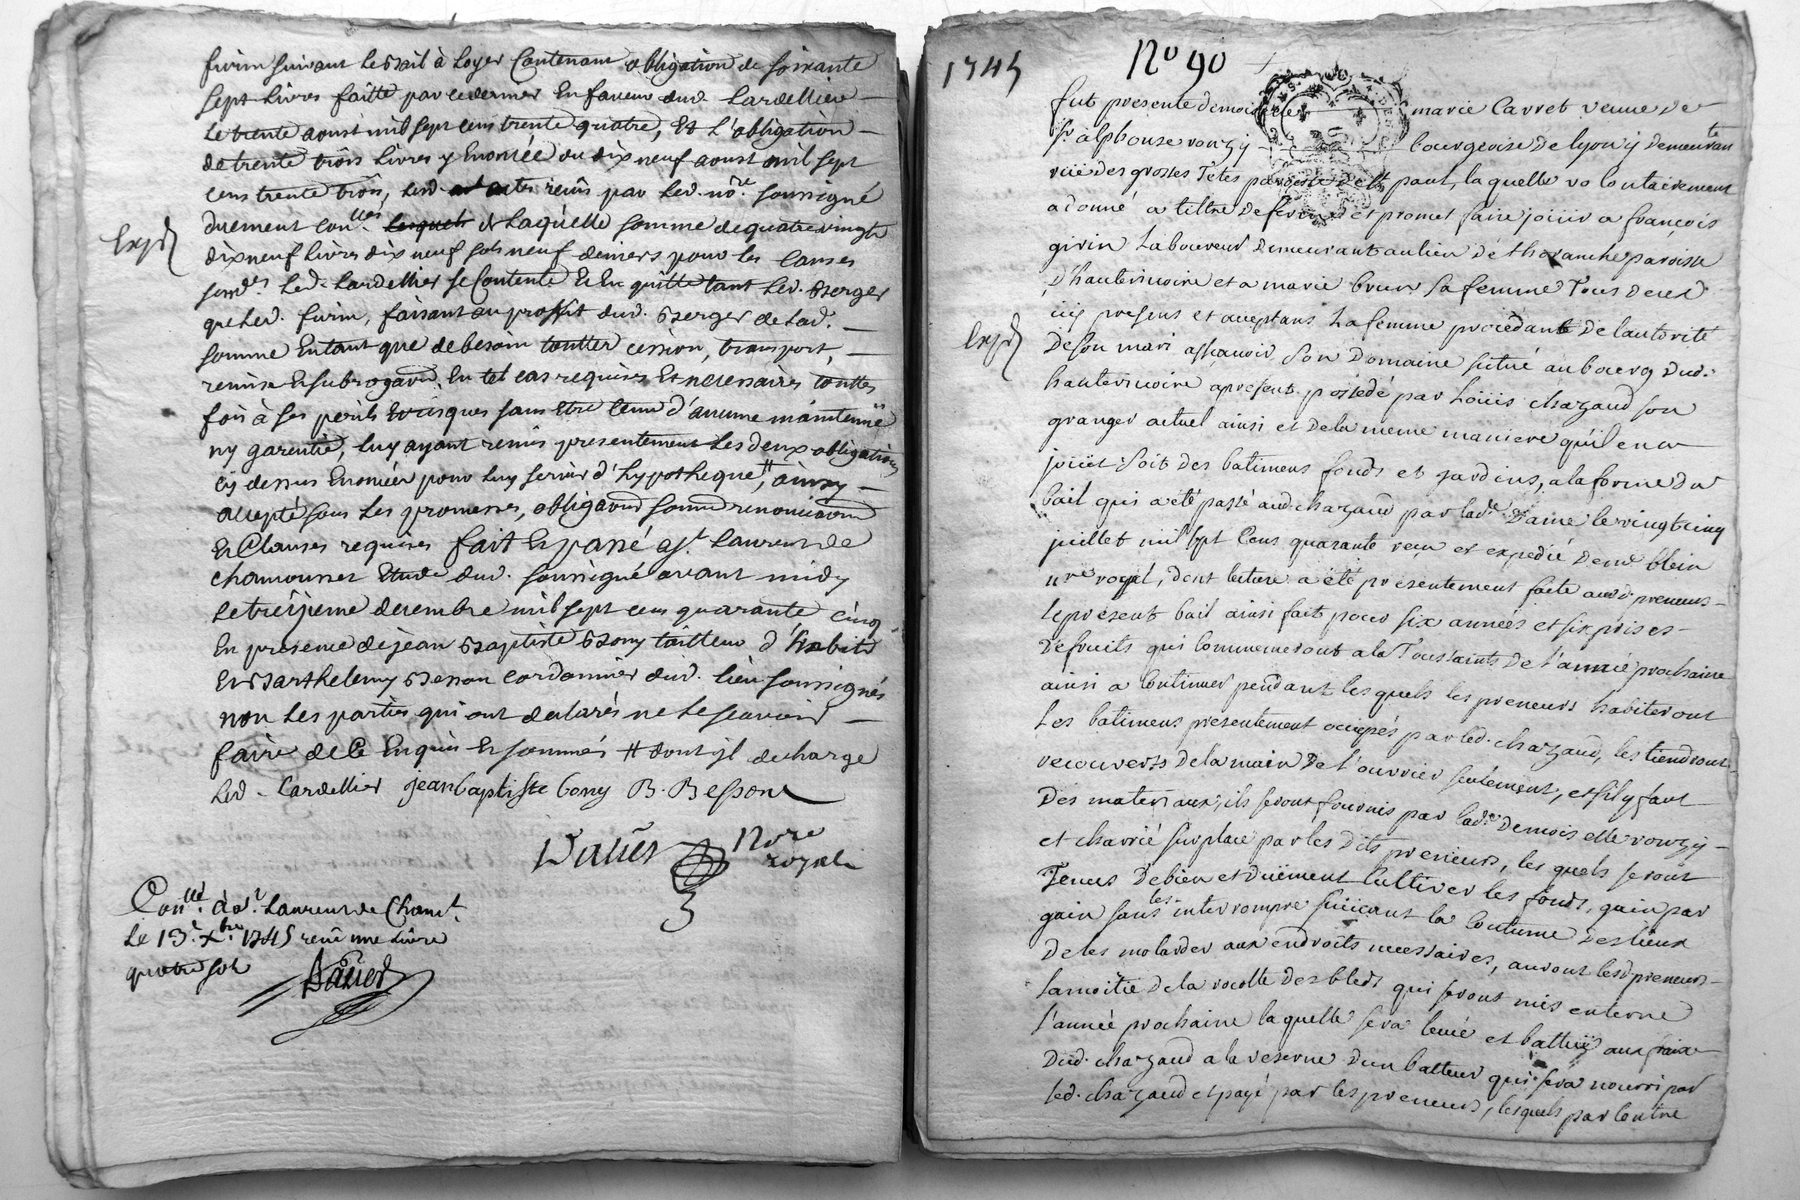 firim suivant le bail à loyer Contenant obligation de soixante
sept livres faitte par ce dernier en faveur dud. Lardellier
le trente aoust mil sept cens trente quatre, et l'obligation
de trente trois livres y enoncée du dix neuf aoust mil sept
cens trente trois, receüs par led. nore. soussigné
duement con.llées & laquelle somme de quatre vingts
dix neuf livres dix neuf sols neuf deniers pour les causes
expd
susd.es led. Lardellier se Contente et en quitte tant led. Berger
que led. firim, faisant au proffit dud. Berger de lad.
somme en tant que de besoin touttes cession, transport,
remise et subrogaon. en tel cas requises et necessaires touttes
fois à ses perils et risques sans etre tenu d'aucune maintenue
ny garentie, luy ayant remis presentement les deux obligations
cy dessus enoncées pour luy servir d'hypotheque, # ainsy
accepté sous les promesses, obligaons. renonciaons
et Clauses requises fait et passé a St. Laurent de
chamousset Etude dud. soussigné avant midy
le treizieme decembre mil sept cens quarante cinq
En presence de jean Baptiste Bony tailleur d'habits
et Barthelemy Besson cordonnier dud. lieu soussignés
non les parties qui ont declarés ne le scavoir
faire de ce enquis et sommés # dont il decharge
led. Lardellier jean baptiste bony B. Besson
Nore
royal
Con.llé à St. Laurent de Cham.t
le 13e xbre 1745 receu une livre
quatre sols
1745
No 90
fut presente demoiselle marie Carret veuve de
Sr. alphonse rouzy bourgeoise de lyon y demeurante
rüe des grosses Tetes paroisse de St. paul, laquelle volontairement
a donné a tittre de ferme et promet faire joüir a françois
girin laboureur demeurant au lieu de thoranche paroisse
d'hauterivoire et a marie brun sa femme Tous deux
icy presens et acceptans la femme procedante de l'autorité
expd
de son mari assçavoir son Domaine situé au bourg dud.
hauterivoire apresent possédé par Loüis chazaud son
granger actuel ainsi et de la meme maniere qu'il en a
joüit soit des batimens fonds et jardins, a la forme du
bail qui a été passé aud. chazaud par lad.e Dame le vingt cinq
juillet mil sept Cens quarante receu et expedié de me blein
nre royal, dont lecture a été presentement faite auxd. preneurs
le present bail ainsi fait pour six années et six prises
de fruits qui Commenceront a la Toussaints de l'année prochaine
ainsi a Continuer pendant lesquels les preneurs habiteront
les batimens presentement occupés par led. chazaud, les tiendront
recouverts de la main de l'ouvrier seulement, et s'il y faut
des materiaux, ils seront fournis par lad.e Demoiselle rouzy
et charrié sur place par les dits preneurs, les quels seront
Tenus de bien et düement Cultiver les fonds, gain par
gain sans les interrompre suivant la Coutume des lieux
de les molarder aux endroits necessaires, auront lesd. preneurs
la moitié de la recolte des bleds qui seront mis en terre
l'année prochaine laquelle sera levée et battüe aux fraix
dud. chazaud a la reserve d'un batteur qui sera nourri par
led. chazaud et payé par les preneurs, lesquels par Contre